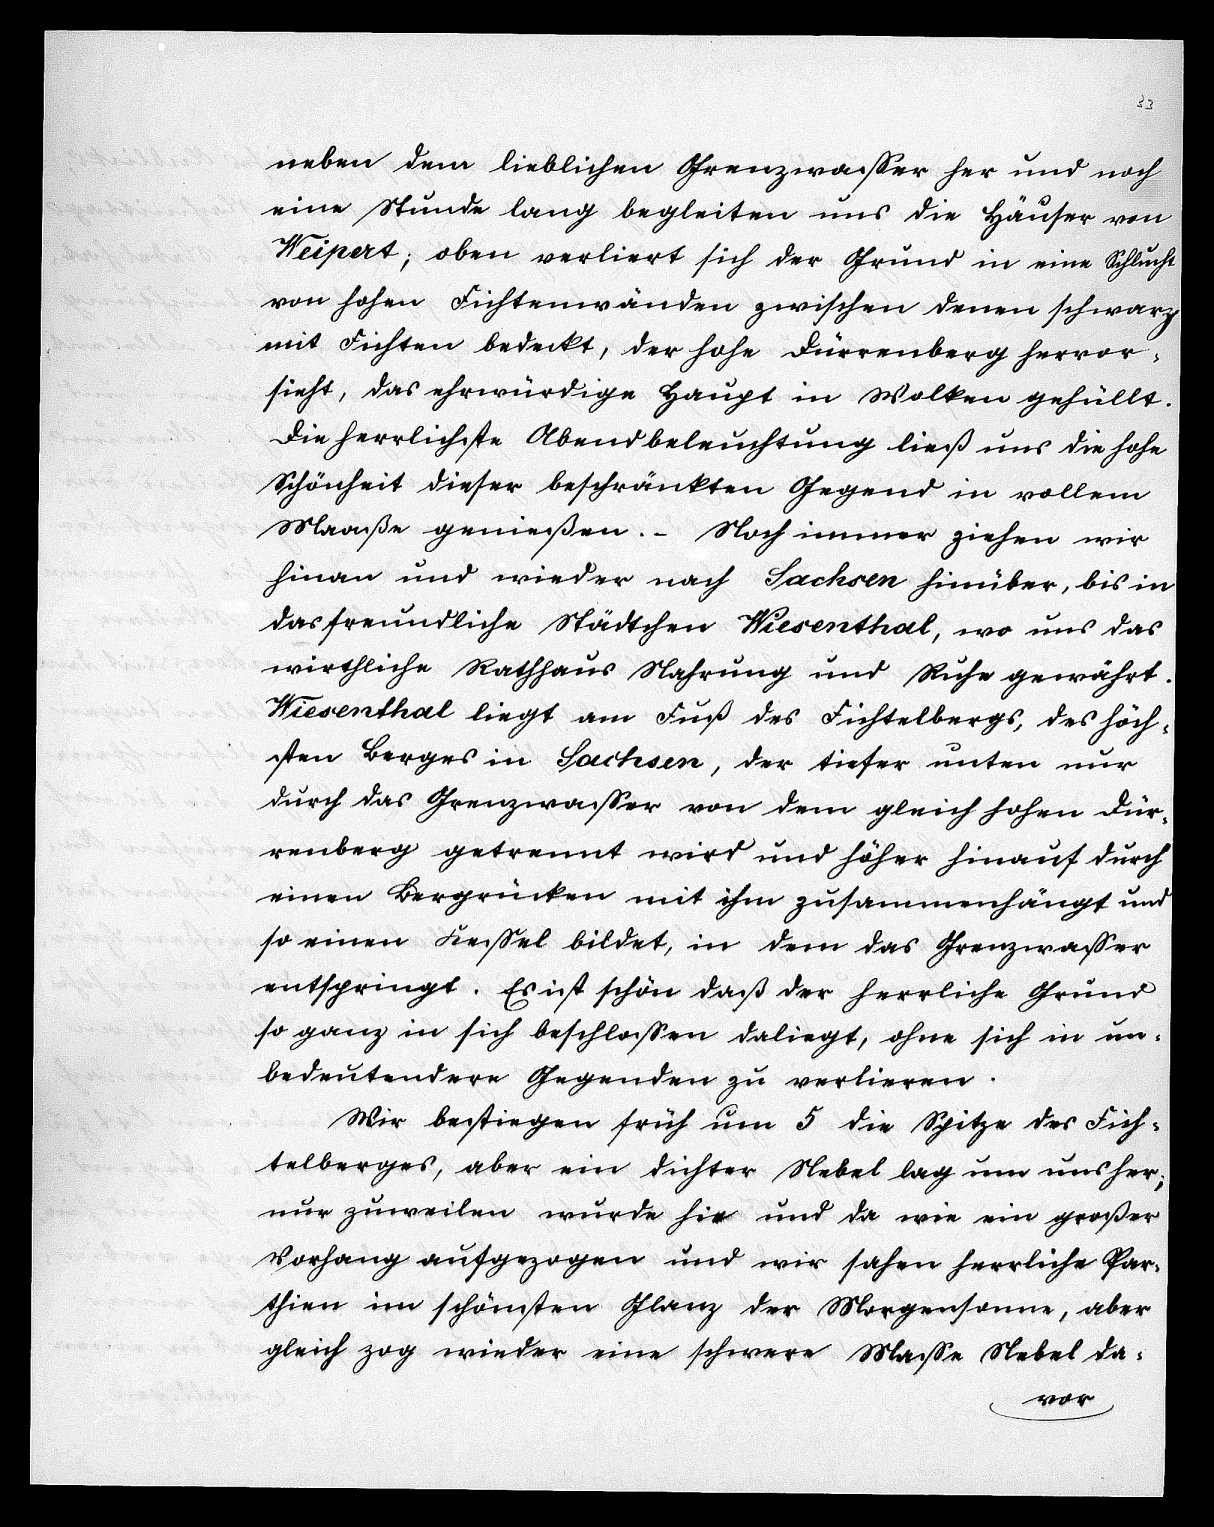 33
neben dem lieblichen Grenzwasser her und noch
eine Stunde lang begleiten uns die Häuser von
Weipert; oben verliert sich der Grund in eine Schlucht
von hohen Fichtenwänden zwischen denen schwarz
mit Fichten bedeckt, der hohe Dürrenberg hervor-
sieht, das ehrwürdige Haupt in Wolken gehüllt.
Die herrlichste Abendbeleuchtung ließ uns die hohe
Schönheit dieser beschränkten Gegend in vollem
Maaße genießen. – Noch immer ziehen wir
hinan und wieder nach Sachsen hinüber, bis in
das freundliche Städtchen Wiesenthal, wo uns das
wirthliche Rathhaus Nahrung und Ruhe gewährt.
Wiesenthal liegt am Fuß des Fichtelbergs, des höch-
sten Berges in Sachsen, der tiefer unten nur
durch das Grenzwasser von dem gleich hohen Dür-
renberg getrennt wird und höher hinauf durch
einen Bergrücken mit ihm zusammenhängt und
so einen Kessel bildet, in dem das Grenzwasser
entspringt. Es ist schön daß der herrliche Grund
so ganz in sich beschlossen daliegt, ohne sich in un-
bedeutendere Gegenden zu verlieren.
Wir bestiegen früh um 5 die Spitze des Fich-
telberges, aber ein dichter Nebel lag um uns her;
nur zuweilen wurde hie und da wie ein großer
Vorhang aufgezogen und wir sahen herrliche Par-
thien im schönsten Glanz der Morgensonne, aber
gleich zog wieder eine schwere Masse Nebel da-
vor